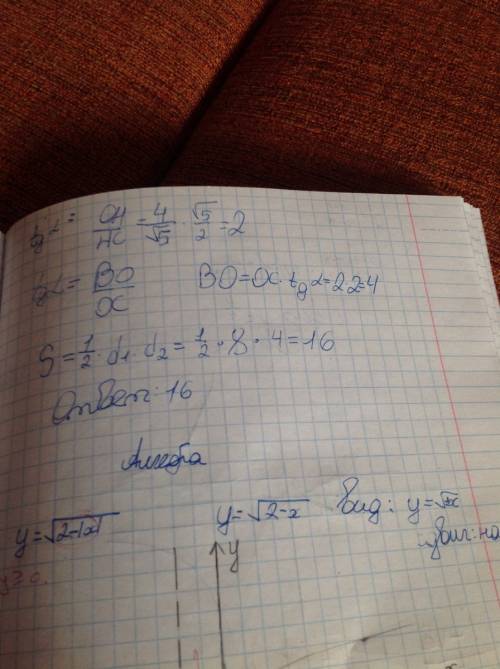 tg α = OH/HC = 4/√5 · √5/2 = 2
tg α = BO/OC BO = OC · tg α = 2·2=4
S = 1/2 · d₁ · d₂ = 1/2 · 8 · 4 = 16
Ответ: 16
Алгебра
y = √(2-|x|) y = √(2-x) Вид: y = √x
y